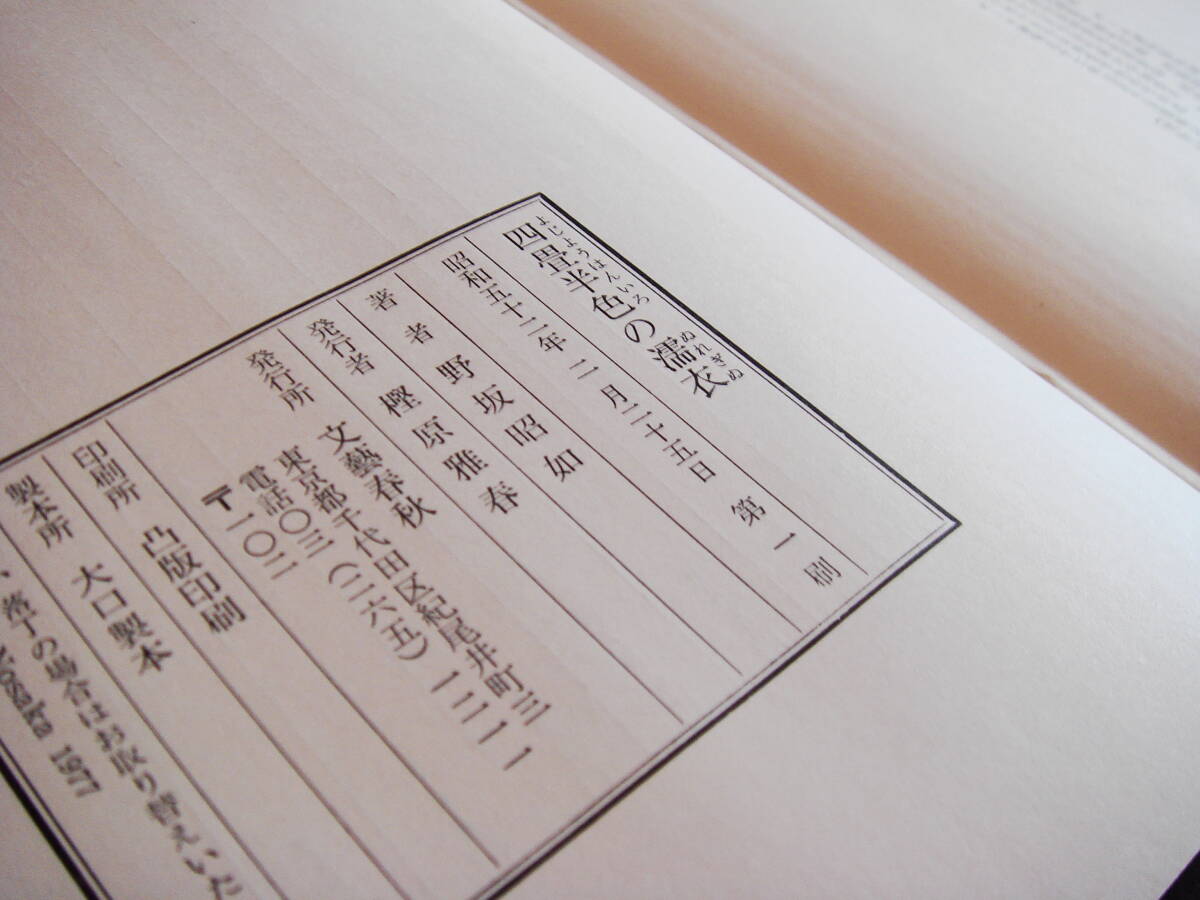 四畳半色の濡衣
よじょうはんいろ
ぬれぎぬ
昭和五十二年二月二十五日 第一刷
著者 野坂昭如
発行者 樫原雅春
発行所 文藝春秋
東京都千代田区紀尾井町三
電話〇三(二六五)一二一一
〒一〇二
印刷所 凸版印刷
製本所 大口製本
落丁の場合はお取り替えいた
Nosaka 1977